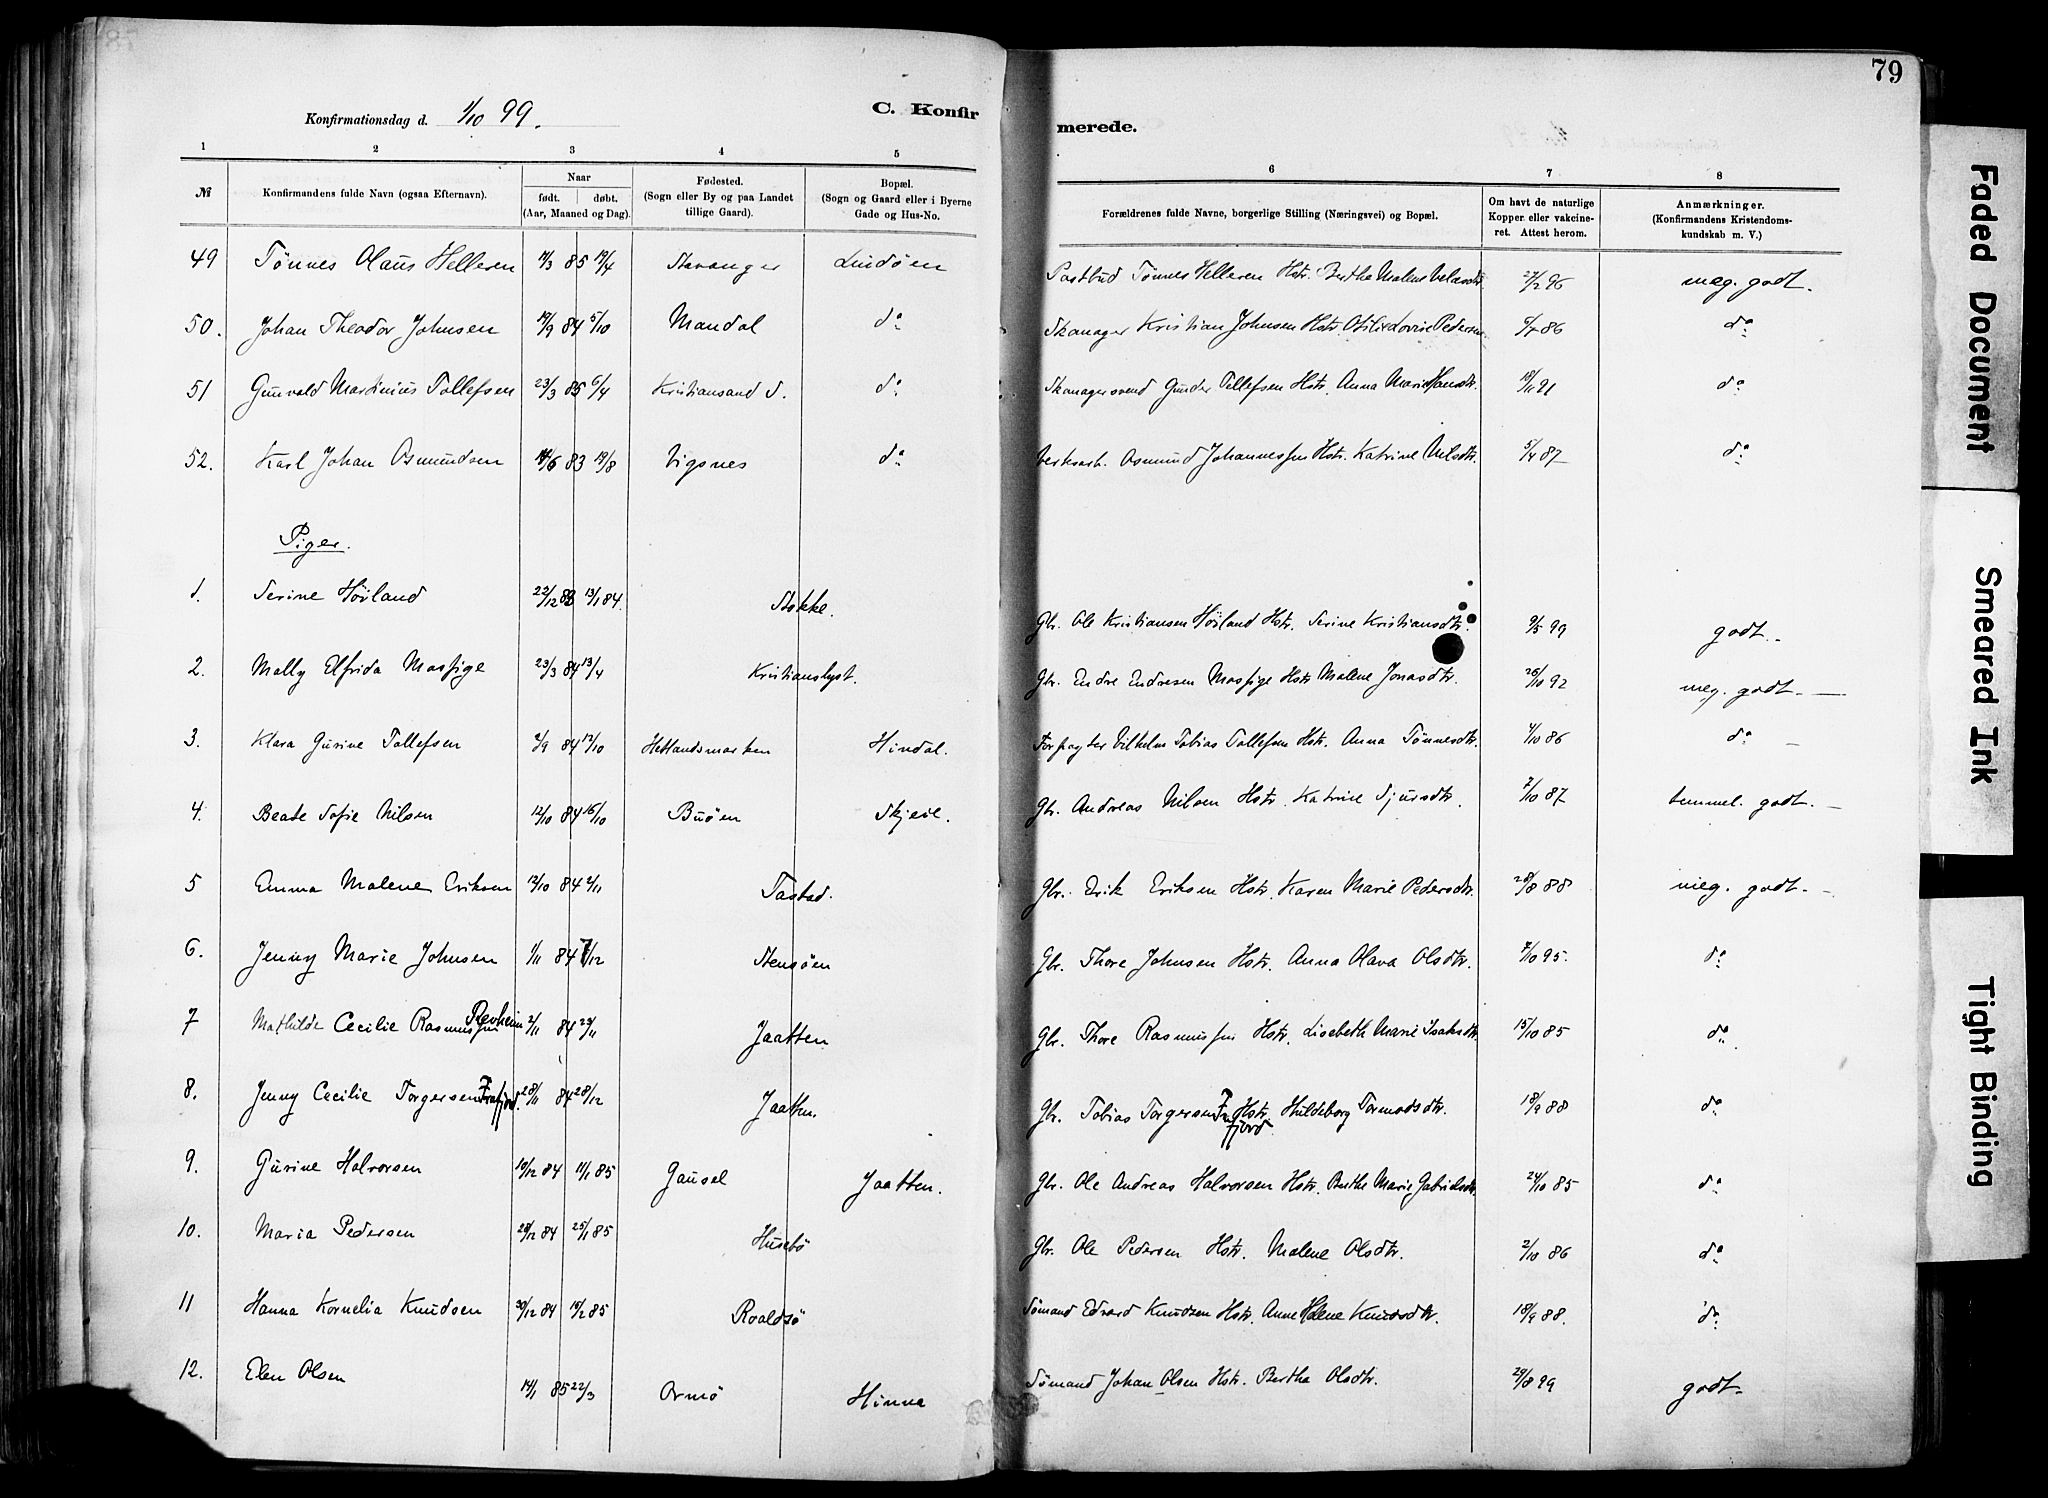 79
Konfirmationsdag d. 1/10 99.
C. Konfirmerede.
1 2 3 4 5 6 7 8
№ Konfirmandens fulde Navn (ogsaa Efternavn). Naar født. døbt. (Aar, Maaned og Dag). Fødested. (Sogn eller By og paa Landet tillige Gaard). Bopæl. (Sogn og Gaard eller i Byerne Gade og Hus-No. Forældrenes fulde Navne, borgerlige Stilling (Næringsvei) og Bopæl. Om havt de naturlige Kopper eller vakcineret. Attest herom. Anmærkninger. (Konfirmandens Kristendomskundskab m. V.)
49 Tønnes Olaus Helleren 85 19/4 Stavanger Lindøen Postbud Tønnes Helleren Hstr. Berthe Malene 27/2 96 meg. godt.
50. Johan Theodor Johnsen 19/9 84 5/10 Mandal do Skomager Kristian Johnsen Hstr. Otilie Lovise Pedersen 5/7 86 do
51 Gunvald Martinius Tollefsen 23/3 85 6/4 Kristiansand S. do Skomagersvend Gunder Tellefsen Hstr. Anna Marie Hansdtr. 18/11 91 do
52. Karl Johan Osmundsen 83 19/8 Vigsnes do Verksarb. Osmund Johannessen Hstr. Katrine Nilsdtr. 5/4 87 do
Piger.
1. Serine Høiland 22/12 83 13/1 84. Stokke. Gbr. Ole Kristiansen Høiland Hstr. Serine Kristiansdtr. 9/5 99 godt.
2. Mally Elfrida Mossige 23/3 84 13/4 Kristianslyst. Gbr. Endre Endresen Mossige Hstr. Malene Jonasdtr. 26/10 92 meg. godt.
3. Klara Gurine Tollefsen 2/9 84 12/10 Hetlandsmarken Hindal. Forpagter Vilhelm Tobias Tollefsen Hstr. Anna Tønnesdtr. 4/10 86 do
4. Beate Sofie Nilsen 12/10 84 16/10 Buøen Gbr. Andreas Nilsen Hstr. Katrine Sjursdtr. 7/10 87 temmel. godt.
5 Emma Malene Eriksen 12/10 84 2/11 Tastad. Gbr. Erik Eriksen Hstr. Karen Marie Pedersdtr. 28/8 88 meg. godt.
6. Jenny Marie Johnsen 1/11 84 7/12 Stensøen Gbr. Thore Johnsen Hstr. Anna Olava Olsdtr. 7/10 95. do
7 Mathilde Cecilie Rasmussen Revheim 2/11 84 23/11 Jaatten Gbr. Thore Rasmussen Hstr. Lisebeth Marie Isaksdtr. 15/10 85 do
8. Jenny Cecilie Torgersen Frafjord. 28/11 84 28/12 Jaatten. Gbr. Tobias Torgersen Frafjord Hstr. Huldeborg Tormodsdtr. 18/9 88 do
9. Gurine Halvorsen 10/12 84 11/1 85 Gausel Jaatten. Gbr. Ole Andreas Halvorsen Hstr. Berthe Marie Gabrielsdtr. 24/10 85 do
10. Maria Pedersen 28/12 84 25/1 85 Husebø Gbr. Ole Pedersen Hstr. Malene Olsdtr. 2/10 86 do
11 Hanna Kornelia Knudsen 30/12 84 15/2 85 Roaldsø Sømand Edvard Knudsen Hstr. Anne Helene Knudsdtr. 18/9 88. do
12. Elen Olsen 14/1 85 22/3 Ormø Hinna Sømand Johan Olsen Hstr. Bertha Olsdtr. 29/8 99 godt.
Faded Document
Smeared Ink
Tight Binding